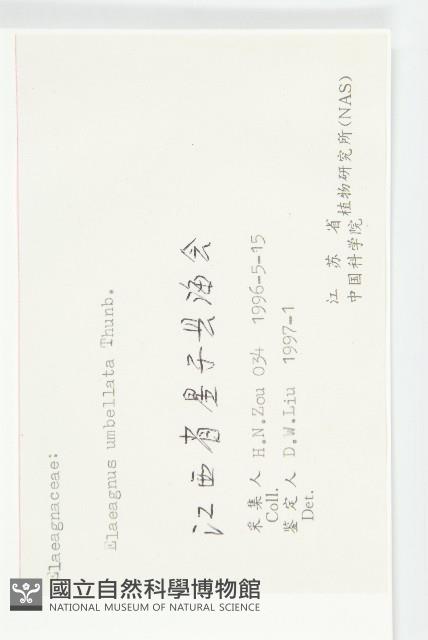 Elaeagnaceae:
Elaeagnus umbellata Thunb.
江西省星子县海会
采集人 H.N.Zou 034 1996-5-15
Coll.
鉴定人 D.W.Liu 1997-1
Det.
江苏省
中国科学院植物研究所(NAS)
國立自然科學博物館
NATIONAL MUSEUM OF NATURAL SCIENCE